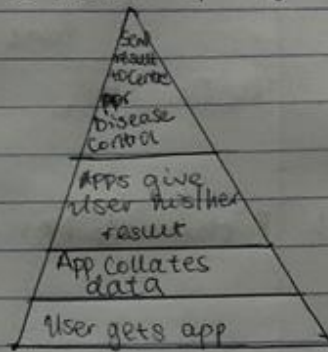 Send
result
to Centre
for
Disease
Control
Apps give
User his/her
result
App Collates
data
User gets app